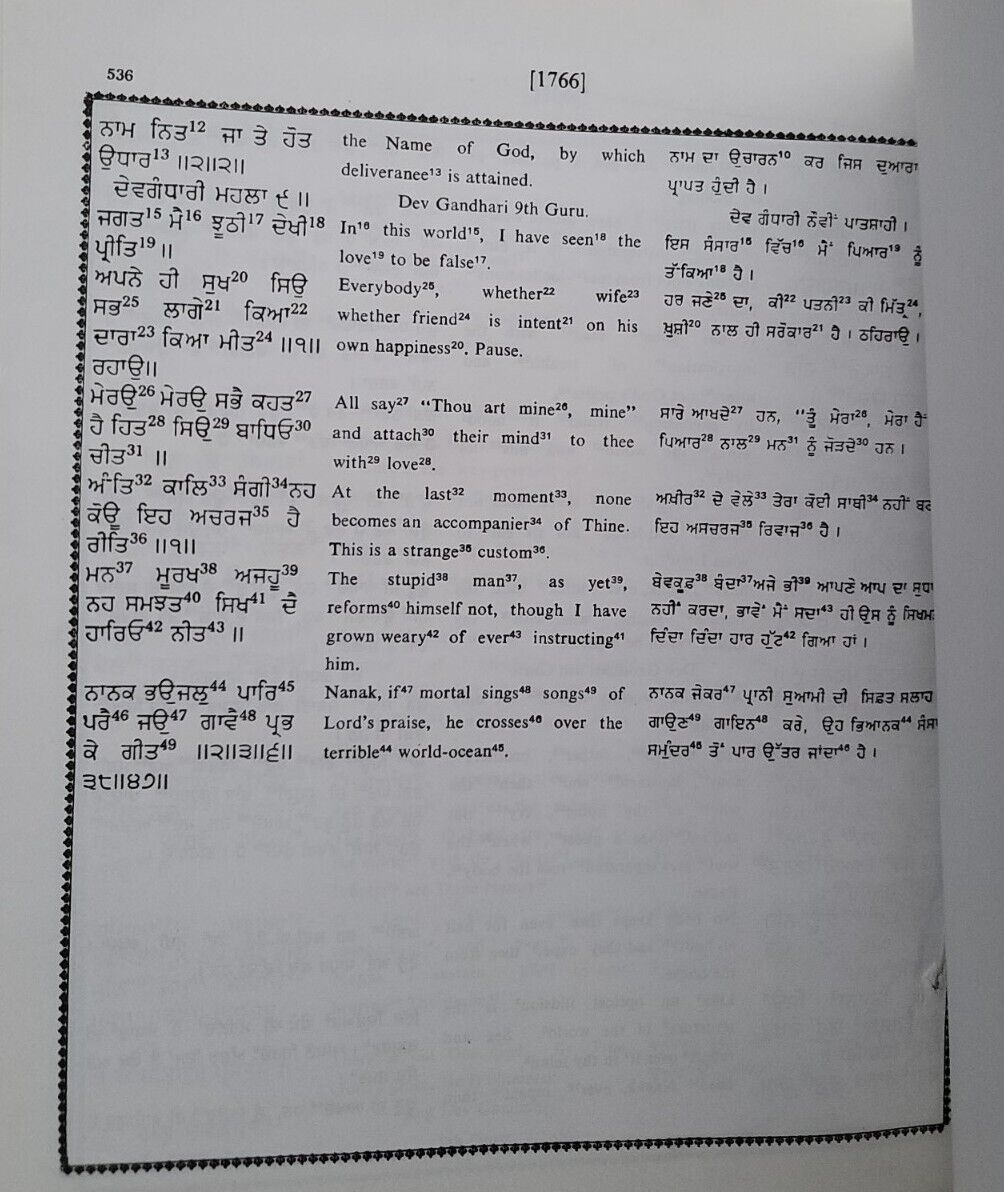 536
[1766]
ਨਾਮ ਨਿਤ¹² ਜਾ ਤੇ ਹੋਤ
ਉਧਾਰ¹³ ॥੨॥੨॥
ਦੇਵਗੰਧਾਰੀ ਮਹਲਾ ੯ ॥
ਜਗਤ¹⁵ ਮੈ¹⁶ ਝੂਠੀ¹⁷ ਦੇਖੀ¹⁸
ਪ੍ਰੀਤਿ¹⁹ ॥
ਅਪਨੇ ਹੀ ਸੁਖ²⁰ ਸਿਉ
ਸਭ²⁵ ਲਾਗੇ²¹ ਕਿਆ²²
ਦਾਰਾ²³ ਕਿਆ ਮੀਤ²⁴ ॥੧॥
ਰਹਾਉ॥
ਮੇਰਉ²⁶ ਮੇਰਉ ਸਭੈ ਕਹਤ²⁷
ਹੈ ਹਿਤ²⁸ ਸਿਉ²⁹ ਬਾਧਿਓ³⁰
ਚੀਤ³¹ ॥
ਅੰਤਿ³² ਕਾਲਿ³³ ਸੰਗੀ³⁴ਨਹ
ਕੋਊ ਇਹ ਅਚਰਜ³⁵ ਹੈ
ਰੀਤਿ³⁶ ॥੧॥
ਮਨ³⁷ ਮੂਰਖ³⁸ ਅਜਹੂ³⁹
ਨਹ ਸਮਝਤ⁴⁰ ਸਿਖ⁴¹ ਦੈ
ਹਾਰਿਓ⁴² ਨੀਤ⁴³ ॥
ਨਾਨਕ ਭਉਜਲੁ⁴⁴ ਪਾਰਿ⁴⁵
ਪਰੈ⁴⁶ ਜਉ⁴⁷ ਗਾਵੈ⁴⁸ ਪ੍ਰਭ
ਕੇ ਗੀਤ⁴⁹ ॥੨॥੩॥੬॥
੩੮॥੪੭॥
the Name of God, by which
deliveranee¹³ is attained.
Dev Gandhari 9th Guru.
In¹⁶ this world¹⁵, I have seen¹⁸ the
love¹⁹ to be false¹⁷.
Everybody²⁵, whether²² wife²³
whether friend²⁴ is intent²¹ on his
own happiness²⁰. Pause.
All say²⁷ “Thou art mine²⁶, mine”
and attach³⁰ their mind³¹ to thee
with²⁹ love²⁸.
At the last³² moment³³, none
becomes an accompanier³⁴ of Thine.
This is a strange³⁵ custom³⁶.
The stupid³⁸ man³⁷, as yet³⁹,
reforms⁴⁰ himself not, though I have
grown weary⁴² of ever⁴³ instructing⁴¹
him.
Nanak, if⁴⁷ mortal sings⁴⁸ songs⁴⁹ of
Lord's praise, he crosses⁴⁶ over the
terrible⁴⁴ world-ocean⁴⁵.
ਨਾਮ ਦਾ ਉਚਾਰਨ¹⁰ ਕਰ ਜਿਸ ਦੁਆਰਾ
ਪ੍ਰਾਪਤ ਹੁੰਦੀ ਹੈ ।
ਦੇਵ ਗੰਧਾਰੀ ਨੌਵੀਂ ਪਾਤਸ਼ਾਹੀ ।
ਇਸ ਸੰਸਾਰ¹⁵ ਵਿੱਚ¹⁶ ਮੈਂ ਪਿਆਰ¹⁹ ਨੂੰ
ਤੱਕਿਆ¹⁸ ਹੈ ।
ਹਰ ਜਣੇ²⁵ ਦਾ, ਕੀ²² ਪਤਨੀ²³ ਕੀ ਮਿੱਤ੍ਰ²⁴,
ਖ਼ੁਸ਼ੀ²⁰ ਨਾਲ ਹੀ ਸਰੋਕਾਰ²¹ ਹੈ । ਠਹਿਰਾਉ ।
ਸਾਰੇ ਆਖਦੇ²⁷ ਹਨ, “ਤੂੰ ਮੇਰਾ²⁶, ਮੇਰਾ ਹੈਂ
ਪਿਆਰ²⁸ ਨਾਲ²⁹ ਮਨ³¹ ਨੂੰ ਜੋੜਦੇ³⁰ ਹਨ ।
ਅਖ਼ੀਰ³² ਦੇ ਵੇਲੇ³³ ਤੇਰਾ ਕੋਈ ਸਾਥੀ³⁴ ਨਹੀਂ
ਇਹ ਅਸਚਰਜ³⁵ ਰਿਵਾਜ³⁶ ਹੈ ।
ਬੇਵਕੂਫ਼³⁸ ਬੰਦਾ³⁷ਅਜੇ ਭੀ³⁹ ਆਪਣੇ ਆਪ ਦਾ
ਨਹੀਂ ਕਰਦਾ, ਭਾਵੇਂ ਮੈਂ ਸਦਾ⁴³ ਹੀ ਉਸ ਨੂੰ
ਦਿੰਦਾ ਦਿੰਦਾ ਹਾਰ ਹੁੱਟ⁴² ਗਿਆ ਹਾਂ ।
ਨਾਨਕ ਜੇਕਰ⁴⁷ ਪ੍ਰਾਨੀ ਸੁਆਮੀ ਦੀ ਸਿਫ਼ਤ ਸਲਾਹ
ਗਾਉਣ⁴⁹ ਗਾਇਨ⁴⁸ ਕਰੇ, ਉਹ ਭਿਆਨਕ⁴⁴
ਸਮੁੰਦਰ⁴⁵ ਤੋਂ ਪਾਰ ਉੱਤਰ ਜਾਂਦਾ⁴⁶ ਹੈ ।